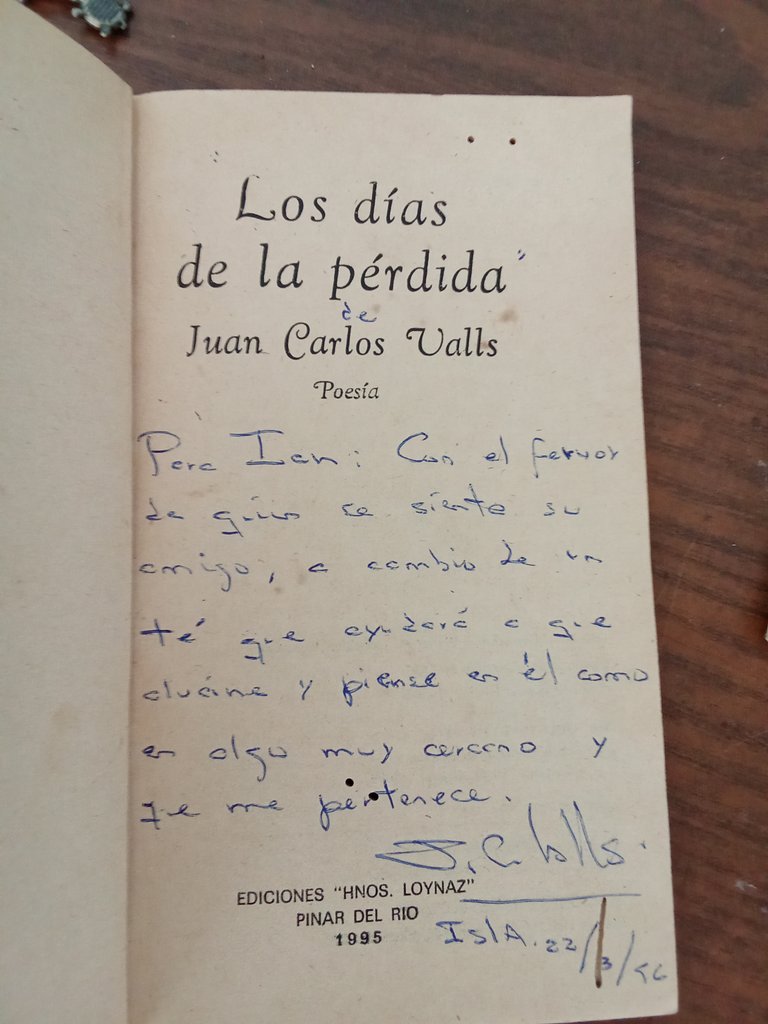 Los días
de la pérdida
de
Juan Carlos Valls
Poesía
Para Ian: Con el fervor
de quien se siente su
amigo, a cambio de un
té que ayudará a que
alucine y piense en él como
en algo muy cercano y
que me pertenece.
J. C. Valls.
EDICIONES "HNOS. LOYNAZ"
PINAR DEL RIO
1995
IslA. 22/3/96